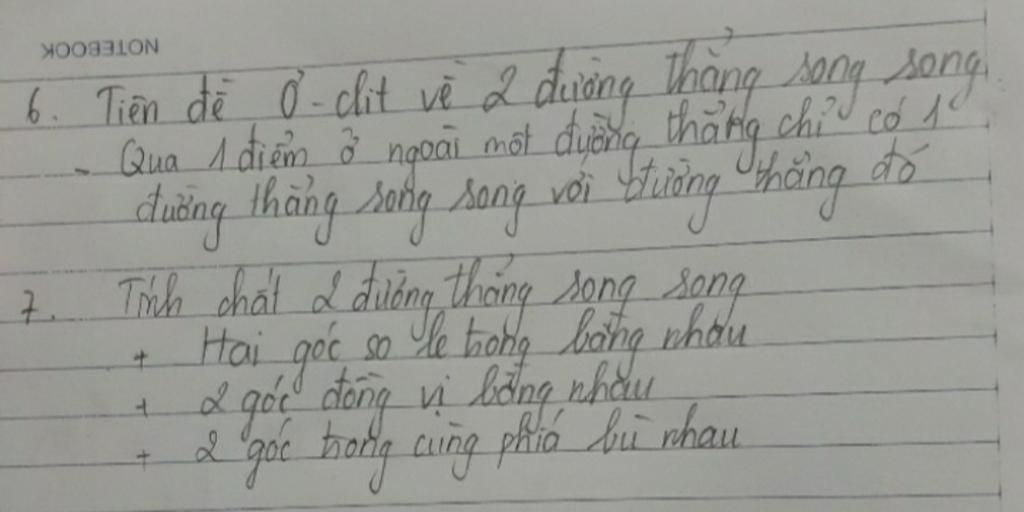 NOTEBOOK
6. Tiên đề Ơ-clit về 2 đường thẳng song song
- Qua 1 điểm ở ngoài một đường thẳng chỉ có 1
đường thẳng song song với đường thẳng đó
7. Tính chất 2 đường thẳng song song
+ Hai góc so le trong bằng nhau
+ 2 góc đồng vị bằng nhau
+ 2 góc trong cùng phía bù nhau